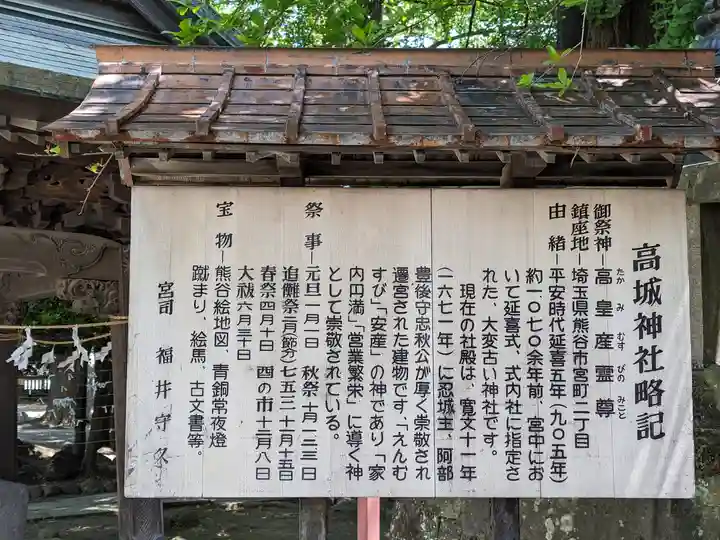 高城神社略記
御祭神―高皇産霊尊
たか み むす びの みこと
鎮座地―埼玉県熊谷市宮町二丁目
由緒―平安時代延喜五年(九〇五年)
約一〇七〇余年前、宮中にお
いて延喜式、式内社に指定さ
れた、大変古い神社です。
現在の社殿は、寛文十一年
(一六七一年)に忍城主、阿部
豊後守忠秋公が厚く崇敬され
遷宮された建物です。「えんむ
すび」「安産」の神であり「家
内円満」「営業繁栄」に導く神
として崇敬されている。
祭事―元旦一月一日 秋祭十月一二三日
追儺祭二月(節分)七五三十一月十五日
春祭四月十日 酉の市十二月八日
大祓六月三十日
宝物―熊谷絵地図、青銅常夜燈
蹴まり、絵馬、古文書等。
宮司 福井守久